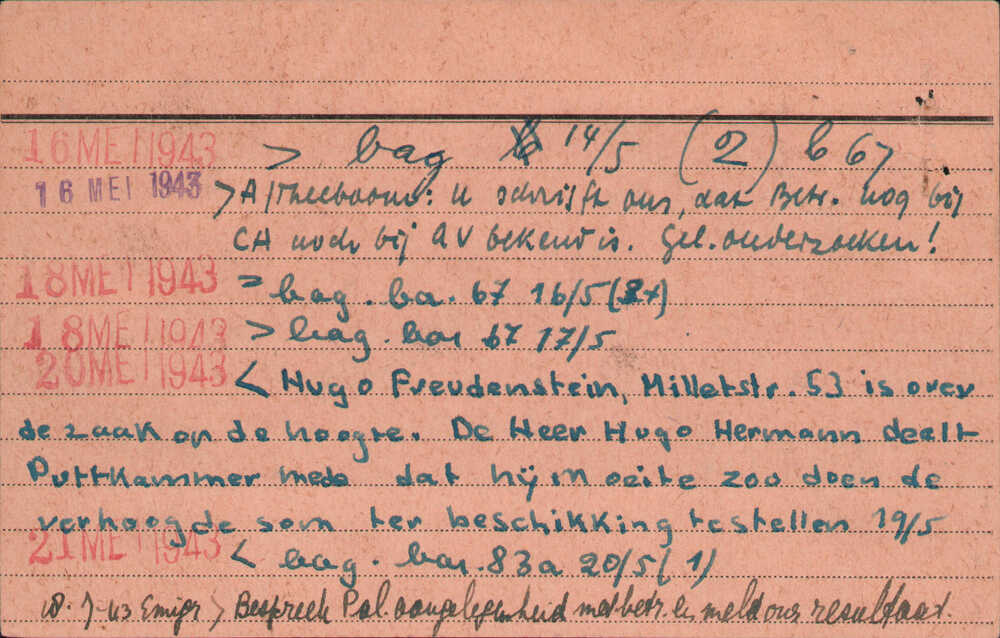 16 MEI 1943 > bag 14/5 (2) b 67
16 MEI 1943 > A/Theeboom: U schrijft ons, dat Betr. nog bij
CA noch bij AV bekend is. Gel. onderzoeken!
18 MEI 1943 > bag. ba. 67 16/5 (2x)
18 MEI 1943 > bag. bar 67 17/5
20 MEI 1943 < Hugo Freudenstein, Milletstr. 53 is over
de zaak op de hoogte. De Heer Hugo Hermann deelt
Puttkammer mede dat hij moeite zoo doen de
verhoogde som ter beschikking te stellen 19/5
21 MEI 1943 < bag. bar. 83a 20/5 (1)
10-7-43 Emigr > Bespreek Pal. aangelegenheid met betr. en meld ons resultaat.